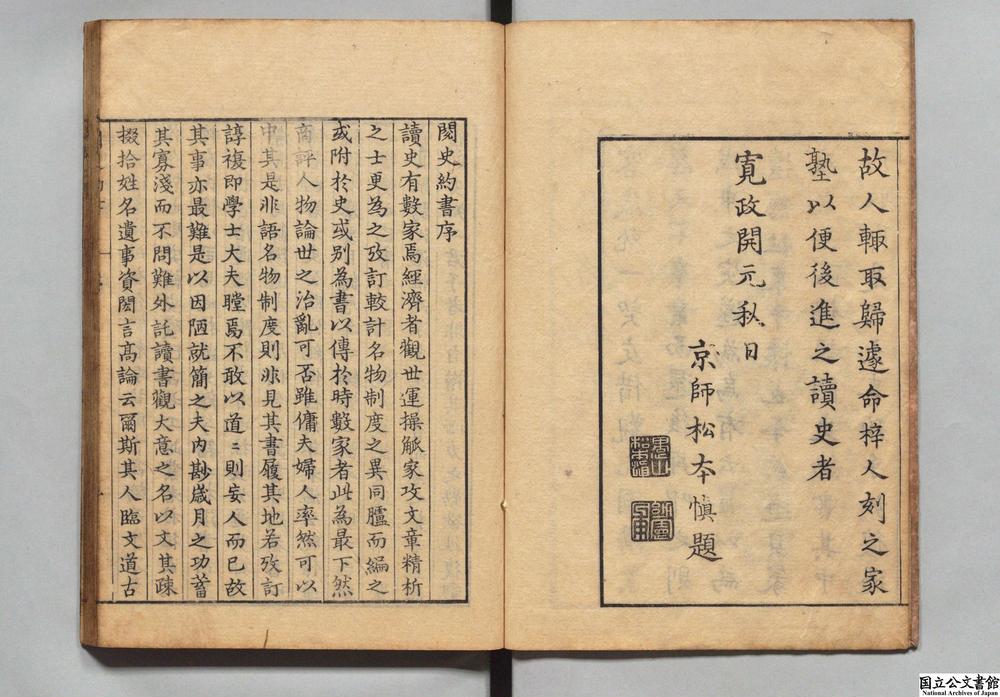 故人輙取歸遽命梓人刻之家
塾以便後進之讀史者
寛政開元秋日
京師松本慎題
閱史約書序
讀史有數家焉經濟者觀世運操觚家攻文章精析
之士更為之攷訂較計名物制度之異同臚而編之
或附於史或别為書以傳於時數家者此為最下然
商評人物論世之治亂可否雖傭夫婦人率然可以
中其是非語名物制度則非見其書履其地若攷訂
諄複即學士大夫瞠焉不敢以道〻則妄人而已故
其事亦最難是以因陋就簡之夫内尠歲月之功蓄
其寡淺而不問難外託讀書觀大意之名以文其疎
掇拾姓名遺事資閎言髙論云爾斯其人臨文道古
国立公文書館
National Archives of Japan